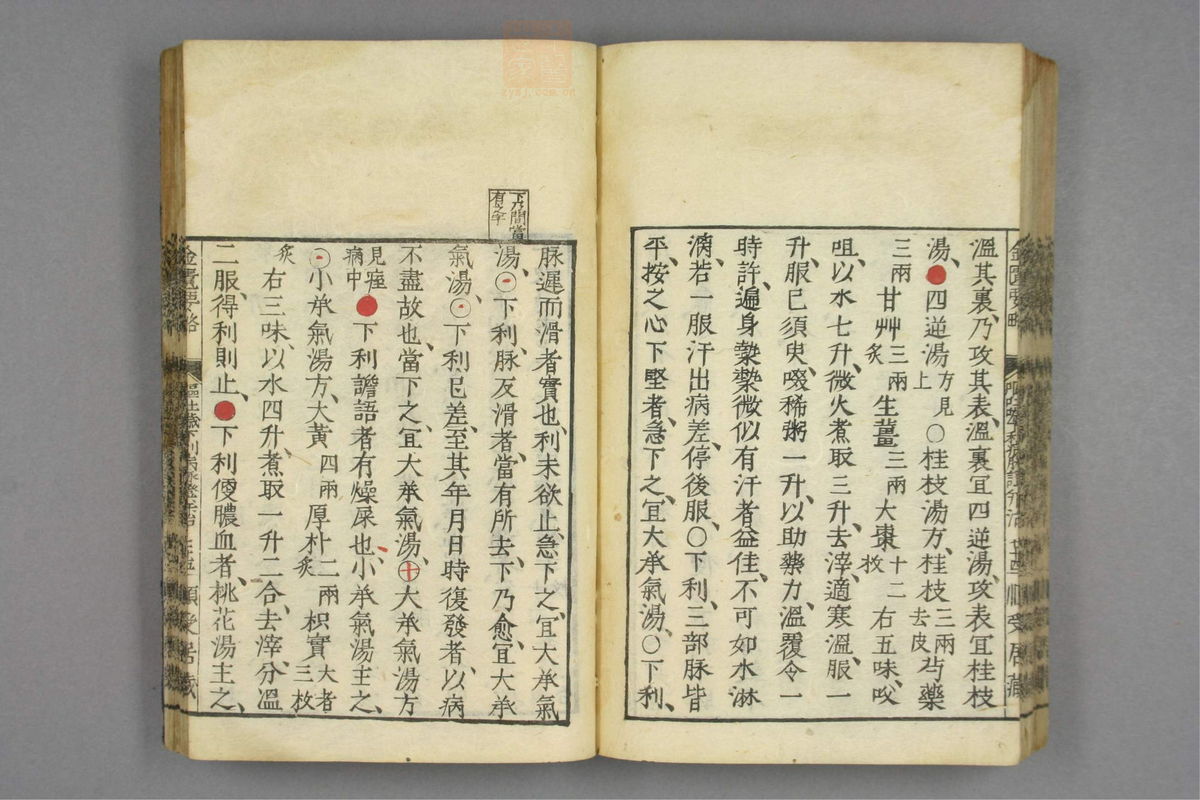 溫其裏、乃攻其表、溫裏宜四逆湯、攻表宜桂枝
湯、●四逆湯方見上○桂枝湯方、桂枝三兩去皮芍藥
三兩甘艸三兩炙生薑三兩大棗十二枚右五味、㕮
咀、以水七升、微火煮取三升、去滓、適寒溫、服一
升、服已須臾、啜稀粥一升、以助藥力、溫覆令一
時許、遍身漐漐微似有汗者益佳、不可如水淋
漓、若一服汗出病差、停後服、○下利、三部脉皆
平、按之心下堅者、急下之、宜大承氣湯、○下利、
脉遲而滑者實也、利未欲止、急下之、宜大承氣
湯、○下利、脉反滑者、當有所去、下乃愈、宜大承
氣湯、○下利已差、至其年月日時復發者、以病
不盡故也、當下之、宜大承氣湯、十大承氣湯方
見痙病中●下利譫語者有燥屎也、小承氣湯主之、
○小承氣湯方、大黃四兩厚朴二兩炙枳實大者三枚
炙右三味、以水四升、煮取一升二合、去滓、分溫
二服、得利則止、●下利便膿血者、桃花湯主之、
金匱要略
順受居藏
zysj.com.cn